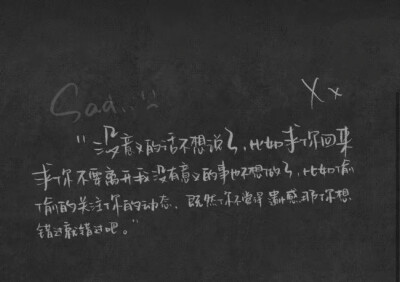 Sad...
Xx
"没意义的话不想说了,比如求你回来
求你不要离开我没有意义的事也不想做了,比如偷
偷的关注你的动态、既然你不觉得遗憾那你想
错过就错过吧。"